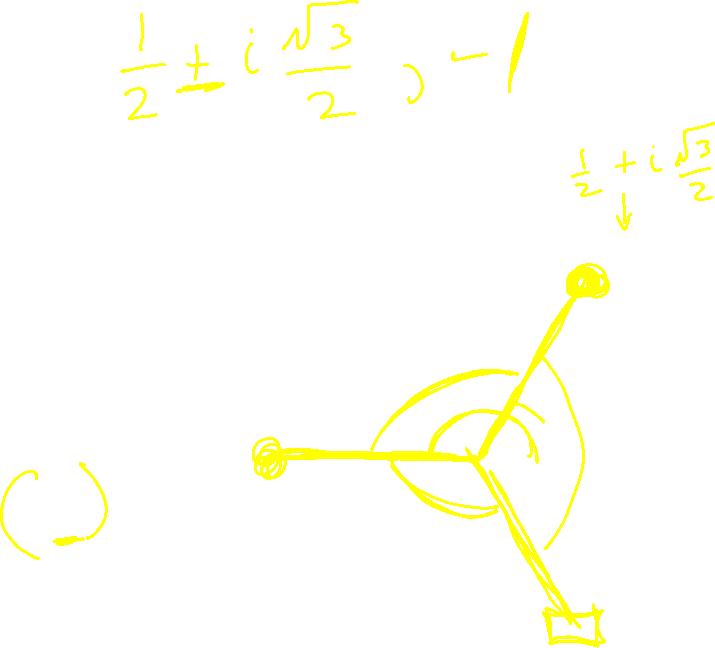 1/2 ± i √3/2 , -1
1/2 + i √3/2